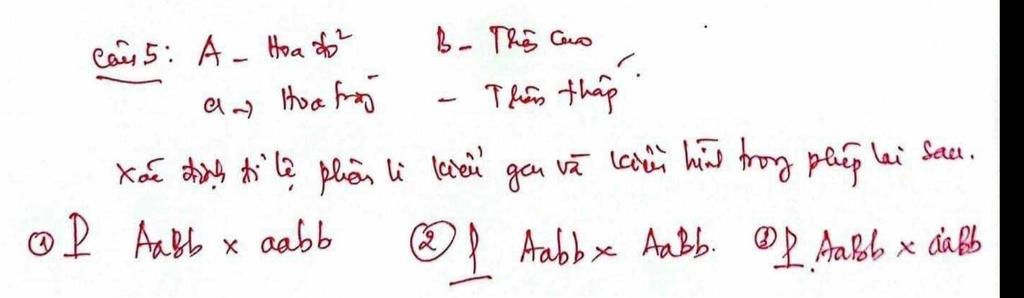 Câu 5: A - Hoa đỏ B - Thân cao
a → Hoa trắng - Thân thấp.
Xác định tỉ lệ phân li kiểu gen và kiểu hình trong phép lai sau.
① P AaBb x aabb ② P Aabb x AaBb. ③ P AaBb x aaBb